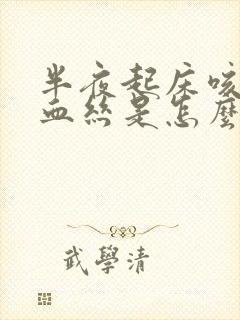 半夜起床咳
血絲是怎麼
武學清